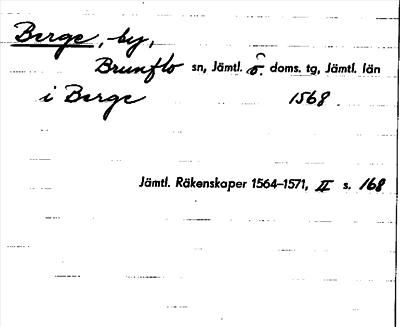 Berge, by,
Brunflo sn, Jämtl. ö. doms. tg, Jämtl. län
i Berge 1568.
Jämtl. Räkenskaper 1564–1571, II s. 168